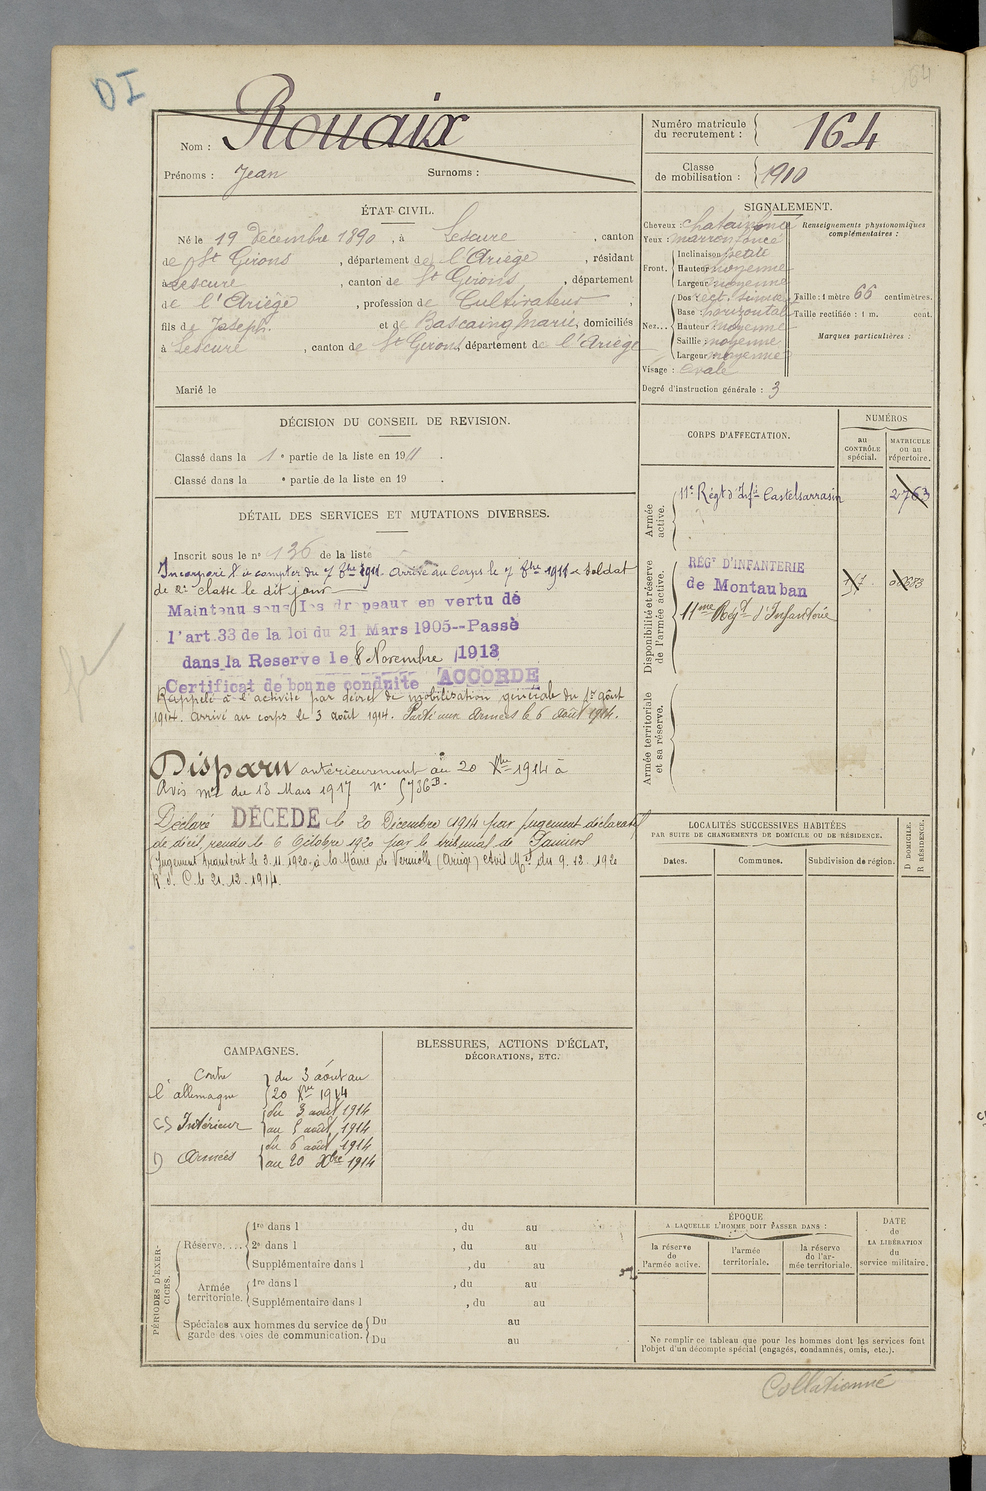 DI
64
Nom : Rouaix
Prénoms : Jean Surnoms :
Numéro matricule du recrutement : 164
Classe de mobilisation : 1910
ÉTAT CIVIL.
Né le 19 Décembre 1890, à Lescure, canton
de St Girons, département de l'Ariège, résidant
à Lescure, canton de St Girons, département
de l'Ariège, profession de Cultivateur,
fils de Joseph et de Bascaing Marie, domiciliés
à Lescure, canton de St Girons, département de l'Ariège
Marié le
SIGNALEMENT.
Cheveux : chatain foncé
Yeux : marron foncé
Front. Inclinaison petite
Hauteur moyenne
Largeur moyenne
Nez... Dos rect. sinueux
Base : horizontal
Hauteur moyenne
Saillie : moyenne
Largeur moyenne
Visage : ovale
Degré d'instruction générale : 3
Renseignements physionomiques complémentaires :
Taille : 1 mètre 66 centimètres.
Taille rectifiée : 1 m. cent.
Marques particulières :
DÉCISION DU CONSEIL DE REVISION.
Classé dans la 1e partie de la liste en 1911.
Classé dans la e partie de la liste en 19 .
DÉTAIL DES SERVICES ET MUTATIONS DIVERSES.
Inscrit sous le no 136 de la liste
Incorporé à compter du 7 8bre 1911. Arrivé au Corps le 7 8bre 1911 Soldat
de 2e classe le dit jour
Maintenu sous les drapeaux en vertu de
l'art.33 de la loi du 21 Mars 1905--Passé
dans la Reserve le 8 Novembre 1913
Certificat de bonne conduite ACCORDE
Rappelé à l'activité par décret de mobilisation générale du 1er août
1914. Arrivé au corps le 3 août 1914. Parti aux Armées le 6 août 1914.
Disparu antérieurement au 20 Xbre 1914 à
Avis mel du 13 Mars 1917 No 5736B.
Déclaré DÉCÉDÉ le 20 Décembre 1914 par jugement déclaratif
de décès, rendu le 6 Octobre 1920 par le tribunal de Pamiers
(Jugement transcrit le 3.11.1920 à la Mairie de Verniolle (Ariège) du 9.12.1920
R. d. C. le 21.12.1914.
CORPS D'AFFECTATION.
NUMÉROS
au CONTRÔLE spécial.
MATRICULE ou au répertoire.
Armée active.
11e Régt d'Infie Castelsarrasin 2763
Disponibilité et réserve de l'armée active.
RÉGt D'INFANTERIE
de Montauban
11eme Régt d'Infanterie
Armée territoriale et sa réserve.
LOCALITÉS SUCCESSIVES HABITÉES
PAR SUITE DE CHANGEMENTS DE DOMICILE OU DE RÉSIDENCE.
Dates.
Communes.
Subdivision de région.
D DOMICILE.
R RÉSIDENCE.
CAMPAGNES.
Contre l'allemagne
du 3 août au
20 Xbre 1914
Intérieur
du 3 août 1914
au 5 août 1914
Armées
du 6 août 1914
au 20 Xbre 1914
BLESSURES, ACTIONS D'ÉCLAT,
DÉCORATIONS, ETC.
PÉRIODES D'EXERCICES.
Réserve....
1re dans l , du au
2e dans l , du au
Supplémentaire dans l , du au
Armée territoriale.
1re dans l , du au
Supplémentaire dans l , du au
Spéciales aux hommes du service de garde des voies de communication.
Du au
Du au
ÉPOQUE
A LAQUELLE L'HOMME DOIT PASSER DANS :
la réserve de l'armée active.
l'armée territoriale.
la réserve de l'armée territoriale.
DATE de LA LIBÉRATION du service militaire.
Ne remplir ce tableau que pour les hommes dont les services font
l'objet d'un décompte spécial (engagés, condamnés, omis, etc.).
Collationné